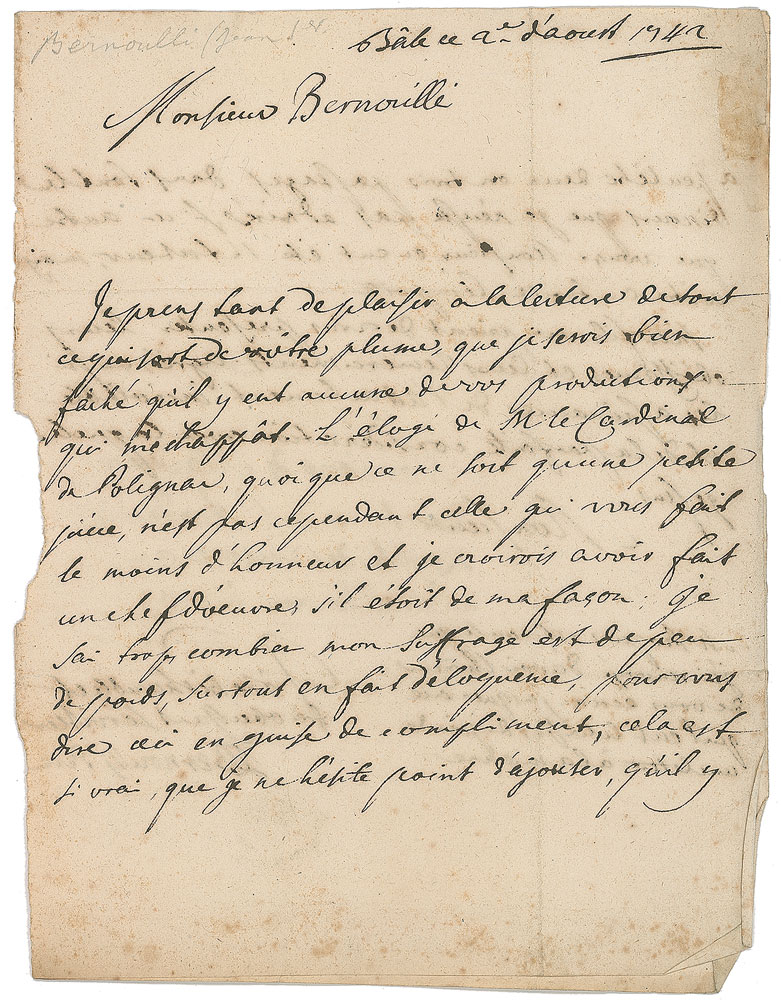 Bernoulli (Jean 1er.
Bâle ce 2e d'aoust 1742
Monsieur Bernouilli
Je prens tant de plaisir à la lecture de tout
ce qui sort de vôtre plume, que je serois bien
faché qu'il y eut aucune de vos productions
qui m'echappât. L'éloge de M le Cardinal
de Polignac, quoi que ce ne soit qu'une petite
piéce, n'est pas cependant celle qui vous fait
le moins d'honneur et je croirois avoir fait
un chef d'oeuvre, s'il étoit de ma façon; Je
sai trop combien mon suffrage est de peu
de poids, surtout en fait d'éloquence, pour vous
dire ceci en guise de compliment, cela est
si vrai, que je ne hésite point d'ajouter, qu'il y